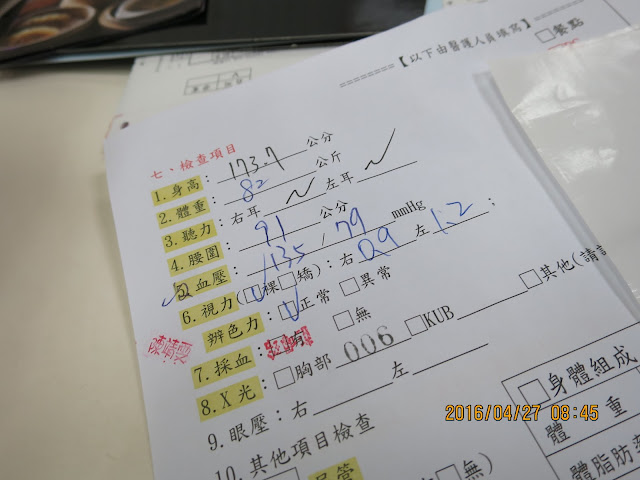 【以下由醫護人員填寫】
□餐點
七、檢查項目
1.身高：173.7公分
2.體重：82公斤
3.聽力：右耳 ✓ 左耳 ✓
4.腰圍：91公分
5.血壓：135/79 mmHg
6.視力(□裸□矯)：右0.9左1.2；
辨色力：□正常 □異常 □其他(請
7.採血：□有 □無
8.X光：□胸部 006 □KUB
9.眼壓：右 左
10.其他項目檢查
□無)
□身體組成
體重
體脂肪率
2016/04/27 08:45